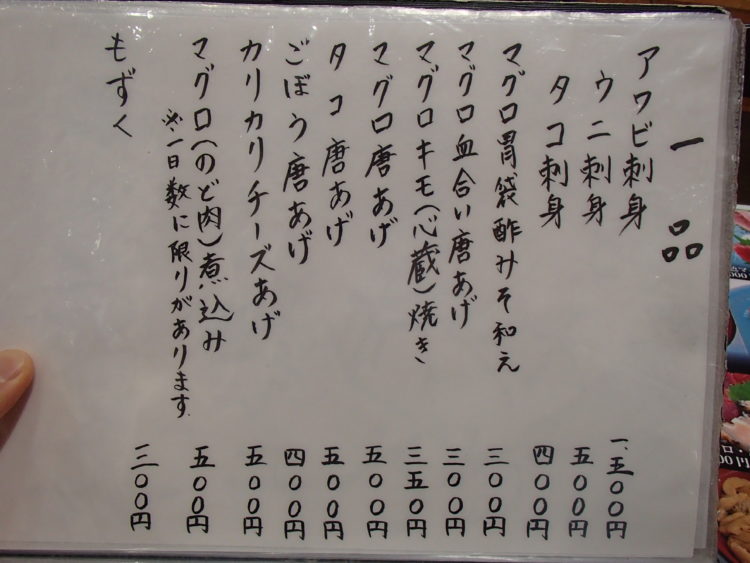 一品
アワビ刺身 一、五〇〇円
ウニ刺身 五〇〇円
タコ刺身 四〇〇円
マグロ胃袋酢みそ和え 三〇〇円
マグロ血合い唐あげ 三〇〇円
マグロキモ(心蔵)焼き 三五〇円
マグロ唐あげ 五〇〇円
タコ唐あげ 五〇〇円
ごぼう唐あげ 四〇〇円
カリカリチーズあげ 五〇〇円
マグロ(のど肉)煮込み 五〇〇円
※一日数に限りがあります
もずく 三〇〇円